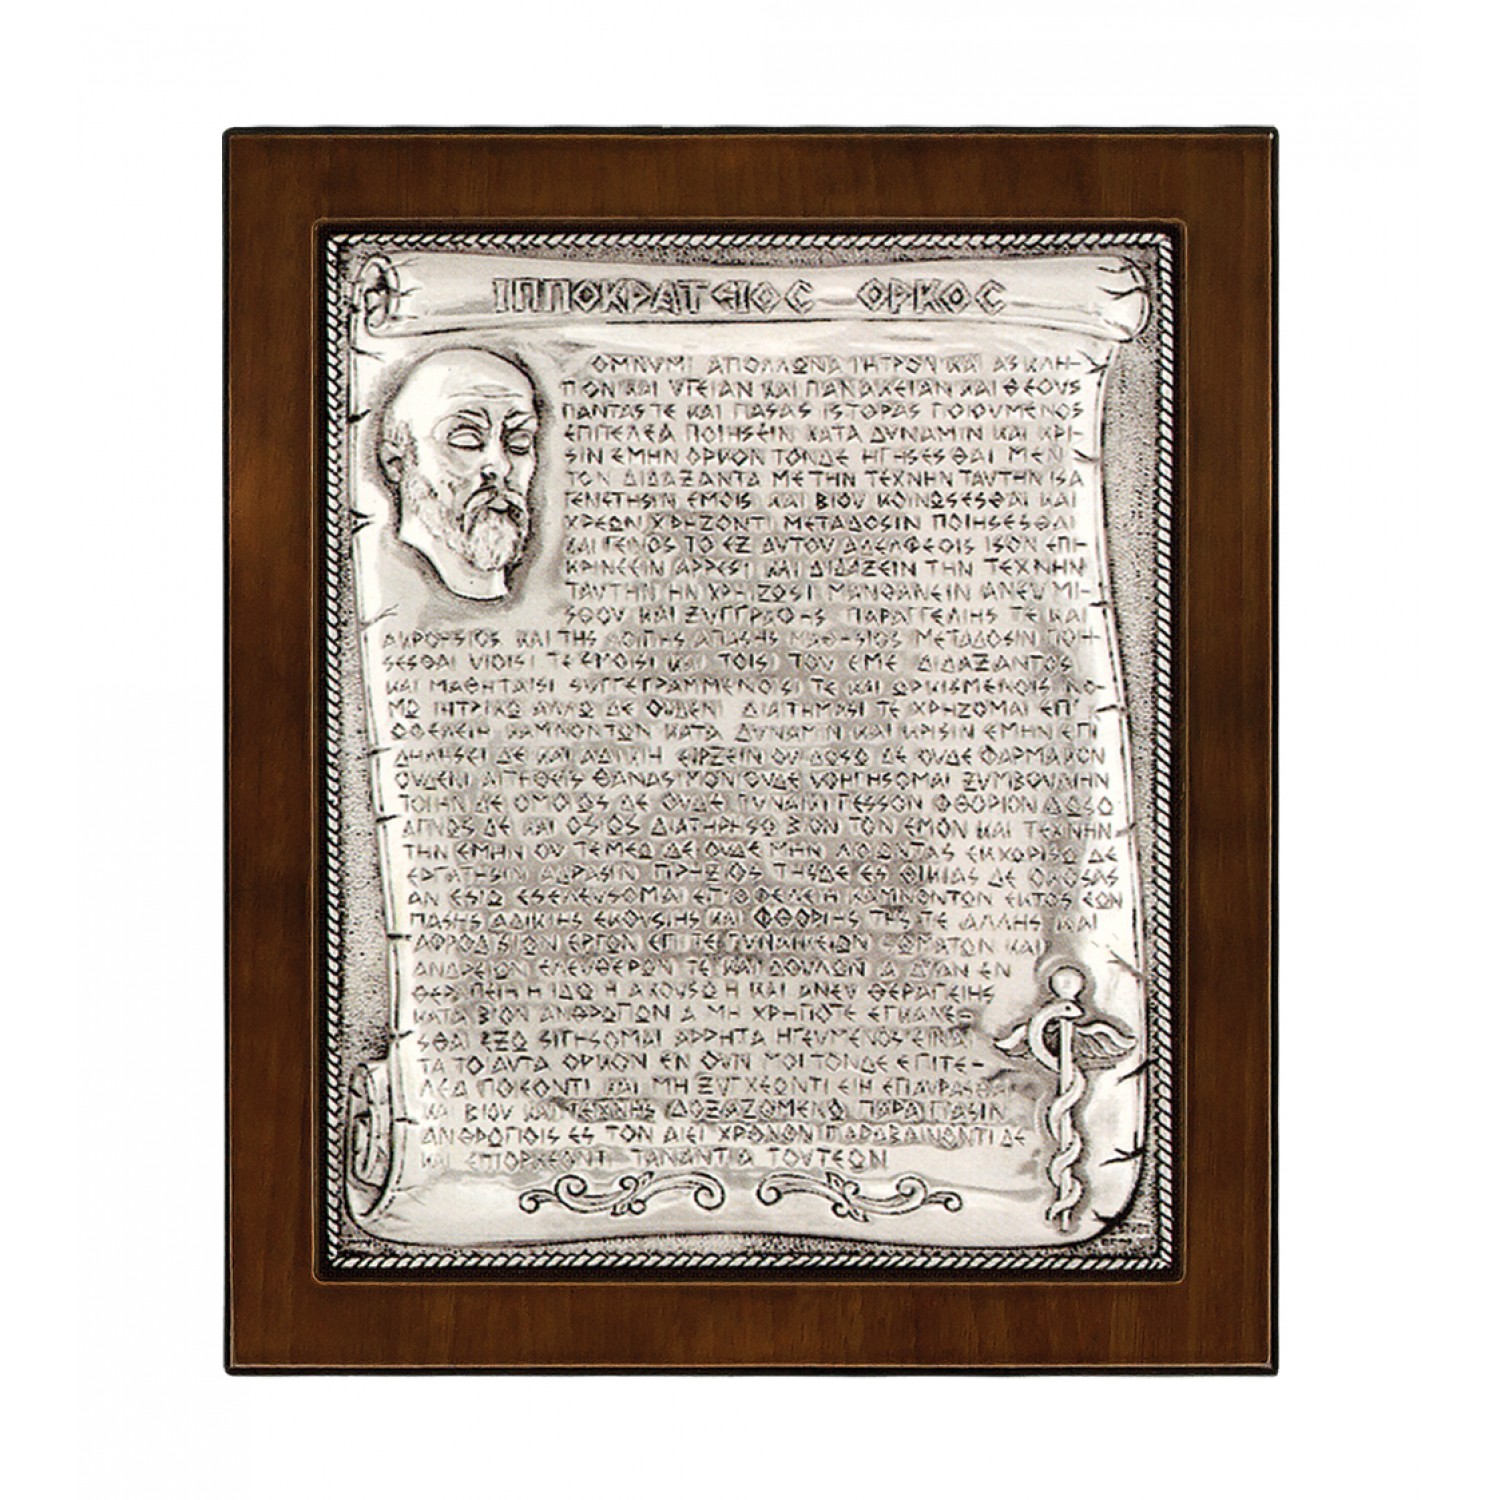 ΙΠΠΟΚΡΑΤΕΙΟΣ ΟΡΚΟΣ
ΟΜΝΥΜΙ ΑΠΟΛΛΩΝΑ ΙΗΤΡΟΝ ΚΑΙ ΑΣΚΛΗ-
ΠΟΝ ΚΑΙ ΥΓΕΙΑΝ ΚΑΙ ΠΑΝΑΚΕΙΑΝ ΚΑΙ ΘΕΟΥΣ
ΠΑΝΤΑΣ ΤΕ ΚΑΙ ΠΑΣΑΣ ΙΣΤΟΡΑΣ ΠΟΙΟΥΜΕΝΟΣ
ΕΠΙΤΕΛΕΑ ΠΟΙΗΣΕΙΝ ΚΑΤΑ ΔΥΝΑΜΙΝ ΚΑΙ ΚΡΙ-
ΣΙΝ ΕΜΗΝ ΟΡΚΟΝ ΤΟΝΔΕ ΗΓΗΣΕΣΘΑΙ ΜΕΝ
ΤΟΝ ΔΙΔΑΞΑΝΤΑ ΜΕ ΤΗΝ ΤΕΧΝΗΝ ΤΑΥΤΗΝ ΙΣΑ
ΓΕΝΕΤΗΣΙΝ ΕΜΟΙΣ ΚΑΙ ΒΙΟΥ ΚΟΙΝΩΣΕΣΘΑΙ ΚΑΙ
ΧΡΕΩΝ ΧΡΗΖΟΝΤΙ ΜΕΤΑΔΟΣΙΝ ΠΟΙΗΣΕΣΘΑΙ
ΚΑΙ ΓΕΝΟΣ ΤΟ ΕΞ ΑΥΤΟΥ ΑΔΕΛΦΕΟΙΣ ΙΣΟΝ ΕΠΙ-
ΚΡΙΝΕΕΙΝ ΑΡΡΕΣΙ ΚΑΙ ΔΙΔΑΞΕΙΝ ΤΗΝ ΤΕΧΝΗΝ
ΤΑΥΤΗΝ ΗΝ ΧΡΗΖΩΣΙ ΜΑΝΘΑΝΕΙΝ ΑΝΕΥ ΜΙ-
ΣΘΟΥ ΚΑΙ ΞΥΓΓΡΑΦΗΣ ΠΑΡΑΓΓΕΛΙΗΣ ΤΕ ΚΑΙ
ΑΚΡΟΗΣΙΟΣ ΚΑΙ ΤΗΣ ΛΟΙΠΗΣ ΑΠΑΣΗΣ ΜΑΘΗΣΙΟΣ ΜΕΤΑΔΟΣΙΝ ΠΟΙΗ-
ΣΕΣΘΑΙ ΥΙΟΙΣΙ ΤΕ ΕΜΟΙΣΙ ΚΑΙ ΤΟΙΣΙ ΤΟΥ ΕΜΕ ΔΙΔΑΞΑΝΤΟΣ
ΚΑΙ ΜΑΘΗΤΑΙΣΙ ΣΥΓΓΕΓΡΑΜΜΕΝΟΙΣΙ ΤΕ ΚΑΙ ΩΡΚΙΣΜΕΝΟΙΣ ΝΟ-
ΜΩ ΙΗΤΡΙΚΩ ΑΛΛΩ ΔΕ ΟΥΔΕΝΙ ΔΙΑΙΤΗΜΑΣΙ ΤΕ ΧΡΗΣΟΜΑΙ ΕΠ'
ΩΦΕΛΕΙΗ ΚΑΜΝΟΝΤΩΝ ΚΑΤΑ ΔΥΝΑΜΙΝ ΚΑΙ ΚΡΙΣΙΝ ΕΜΗΝ ΕΠΙ
ΔΗΛΗΣΕΙ ΔΕ ΚΑΙ ΑΔΙΚΙΗ ΕΙΡΞΕΙΝ ΟΥ ΔΩΣΩ ΔΕ ΟΥΔΕ ΦΑΡΜΑΚΟΝ
ΟΥΔΕΝΙ ΑΙΤΗΘΕΙΣ ΘΑΝΑΣΙΜΟΝ ΟΥΔΕ ΥΦΗΓΗΣΟΜΑΙ ΞΥΜΒΟΥΛΙΗΝ
ΤΟΙΗΝΔΕ ΟΜΟΙΩΣ ΔΕ ΟΥΔΕ ΓΥΝΑΙΚΙ ΠΕΣΣΟΝ ΦΘΟΡΙΟΝ ΔΩΣΩ
ΑΓΝΩΣ ΔΕ ΚΑΙ ΟΣΙΩΣ ΔΙΑΤΗΡΗΣΩ ΒΙΟΝ ΤΟΝ ΕΜΟΝ ΚΑΙ ΤΕΧΝΗΝ
ΤΗΝ ΕΜΗΝ ΟΥ ΤΕΜΕΩ ΔΕ ΟΥΔΕ ΜΗΝ ΛΙΘΙΩΝΤΑΣ ΕΚΧΩΡΗΣΩ ΔΕ
ΕΡΓΑΤΗΣΙΝ ΑΝΔΡΑΣΙΝ ΠΡΗΞΙΟΣ ΤΗΣΔΕ ΕΣ ΟΙΚΙΑΣ ΔΕ ΟΚΟΣΑΣ
ΑΝ ΕΣΙΩ ΕΣΕΛΕΥΣΟΜΑΙ ΕΠ ΩΦΕΛΕΙΗ ΚΑΜΝΟΝΤΩΝ ΕΚΤΟΣ ΕΩΝ
ΠΑΣΗΣ ΑΔΙΚΙΗΣ ΕΚΟΥΣΙΗΣ ΚΑΙ ΦΘΟΡΙΗΣ ΤΗΣ ΤΕ ΑΛΛΗΣ ΚΑΙ
ΑΦΡΟΔΙΣΙΩΝ ΕΡΓΩΝ ΕΠΙ ΤΕ ΓΥΝΑΙΚΕΙΩΝ ΣΩΜΑΤΩΝ ΚΑΙ
ΑΝΔΡΕΙΩΝ ΕΛΕΥΘΕΡΩΝ ΤΕ ΚΑΙ ΔΟΥΛΩΝ Α Δ'ΑΝ ΕΝ
ΘΕΡΑΠΕΙΗ Η ΙΔΩ Η ΑΚΟΥΣΩ Η ΚΑΙ ΑΝΕΥ ΘΕΡΑΠΕΙΗΣ
ΚΑΤΑ ΒΙΟΝ ΑΝΘΡΩΠΩΝ Α ΜΗ ΧΡΗ ΠΟΤΕ ΕΓΚΑΛΕΕ-
ΣΘΑΙ ΕΞΩ ΣΙΓΗΣΟΜΑΙ ΑΡΡΗΤΑ ΗΓΕΥΜΕΝΟΣ ΕΙΝΑΙ
ΤΑ ΤΟΙΑΥΤΑ ΟΡΚΟΝ ΕΝ ΟΥΝ ΜΟΙ ΤΟΝΔΕ ΕΠΙΤΕ-
ΛΕΑ ΠΟΙΕΟΝΤΙ ΚΑΙ ΜΗ ΞΥΓΧΕΟΝΤΙ ΕΙΗ ΕΠΑΥΡΑΣΘΑΙ
ΚΑΙ ΒΙΟΥ ΚΑΙ ΤΕΧΝΗΣ ΔΟΞΑΖΟΜΕΝΩ ΠΑΡΑ ΠΑΣΙΝ
ΑΝΘΡΩΠΟΙΣ ΕΣ ΤΟΝ ΑΙΕΙ ΧΡΟΝΟΝ ΠΑΡΑΒΑΙΝΟΝΤΙ ΔΕ
ΚΑΙ ΕΠΙΟΡΚΕΟΝΤΙ ΤΑΝΑΝΤΙΑ ΤΟΥΤΕΩΝ